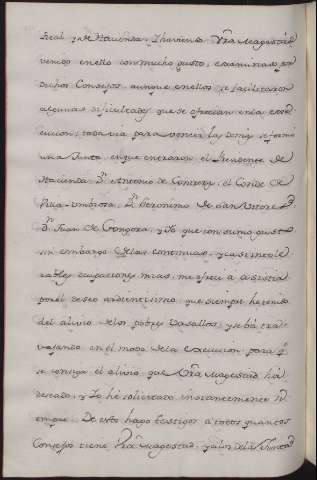 Real, y de Hacienda, y haviendo Vrã Magestad
venido en ello con mucho gusto, examinado por
dichos Consejos, aunque en ellos se facilitaron
algunas dificultades que se ofrecian en la exse
cucion, todavia para vencer las demas se formó
una Junta, en que entraron el Presidente de
Hacienda Dn. Antonio de Contreras, el Conde de
Villa-umbrosa, Dn. Geronimo de San Vitores
Dn. Juan de Gongora, y Yo que con sumo gusto
sin embargo de las continuas, y casi intole
rables ocupaciones mias, me ofrecí a asistir
por el deseo ardentisimo, que siempre he tenido
del alivio de los pobres Vasallos, y se há tra
vajando en el modo de la execucion para q.
se consiga el alivio que Vrã Magestad há
deseado, y Yo hé solicitado incesantemente
De esto hago testigos a todos quantos
Consejos tiene Vrã Magestad, y a los de la Junta